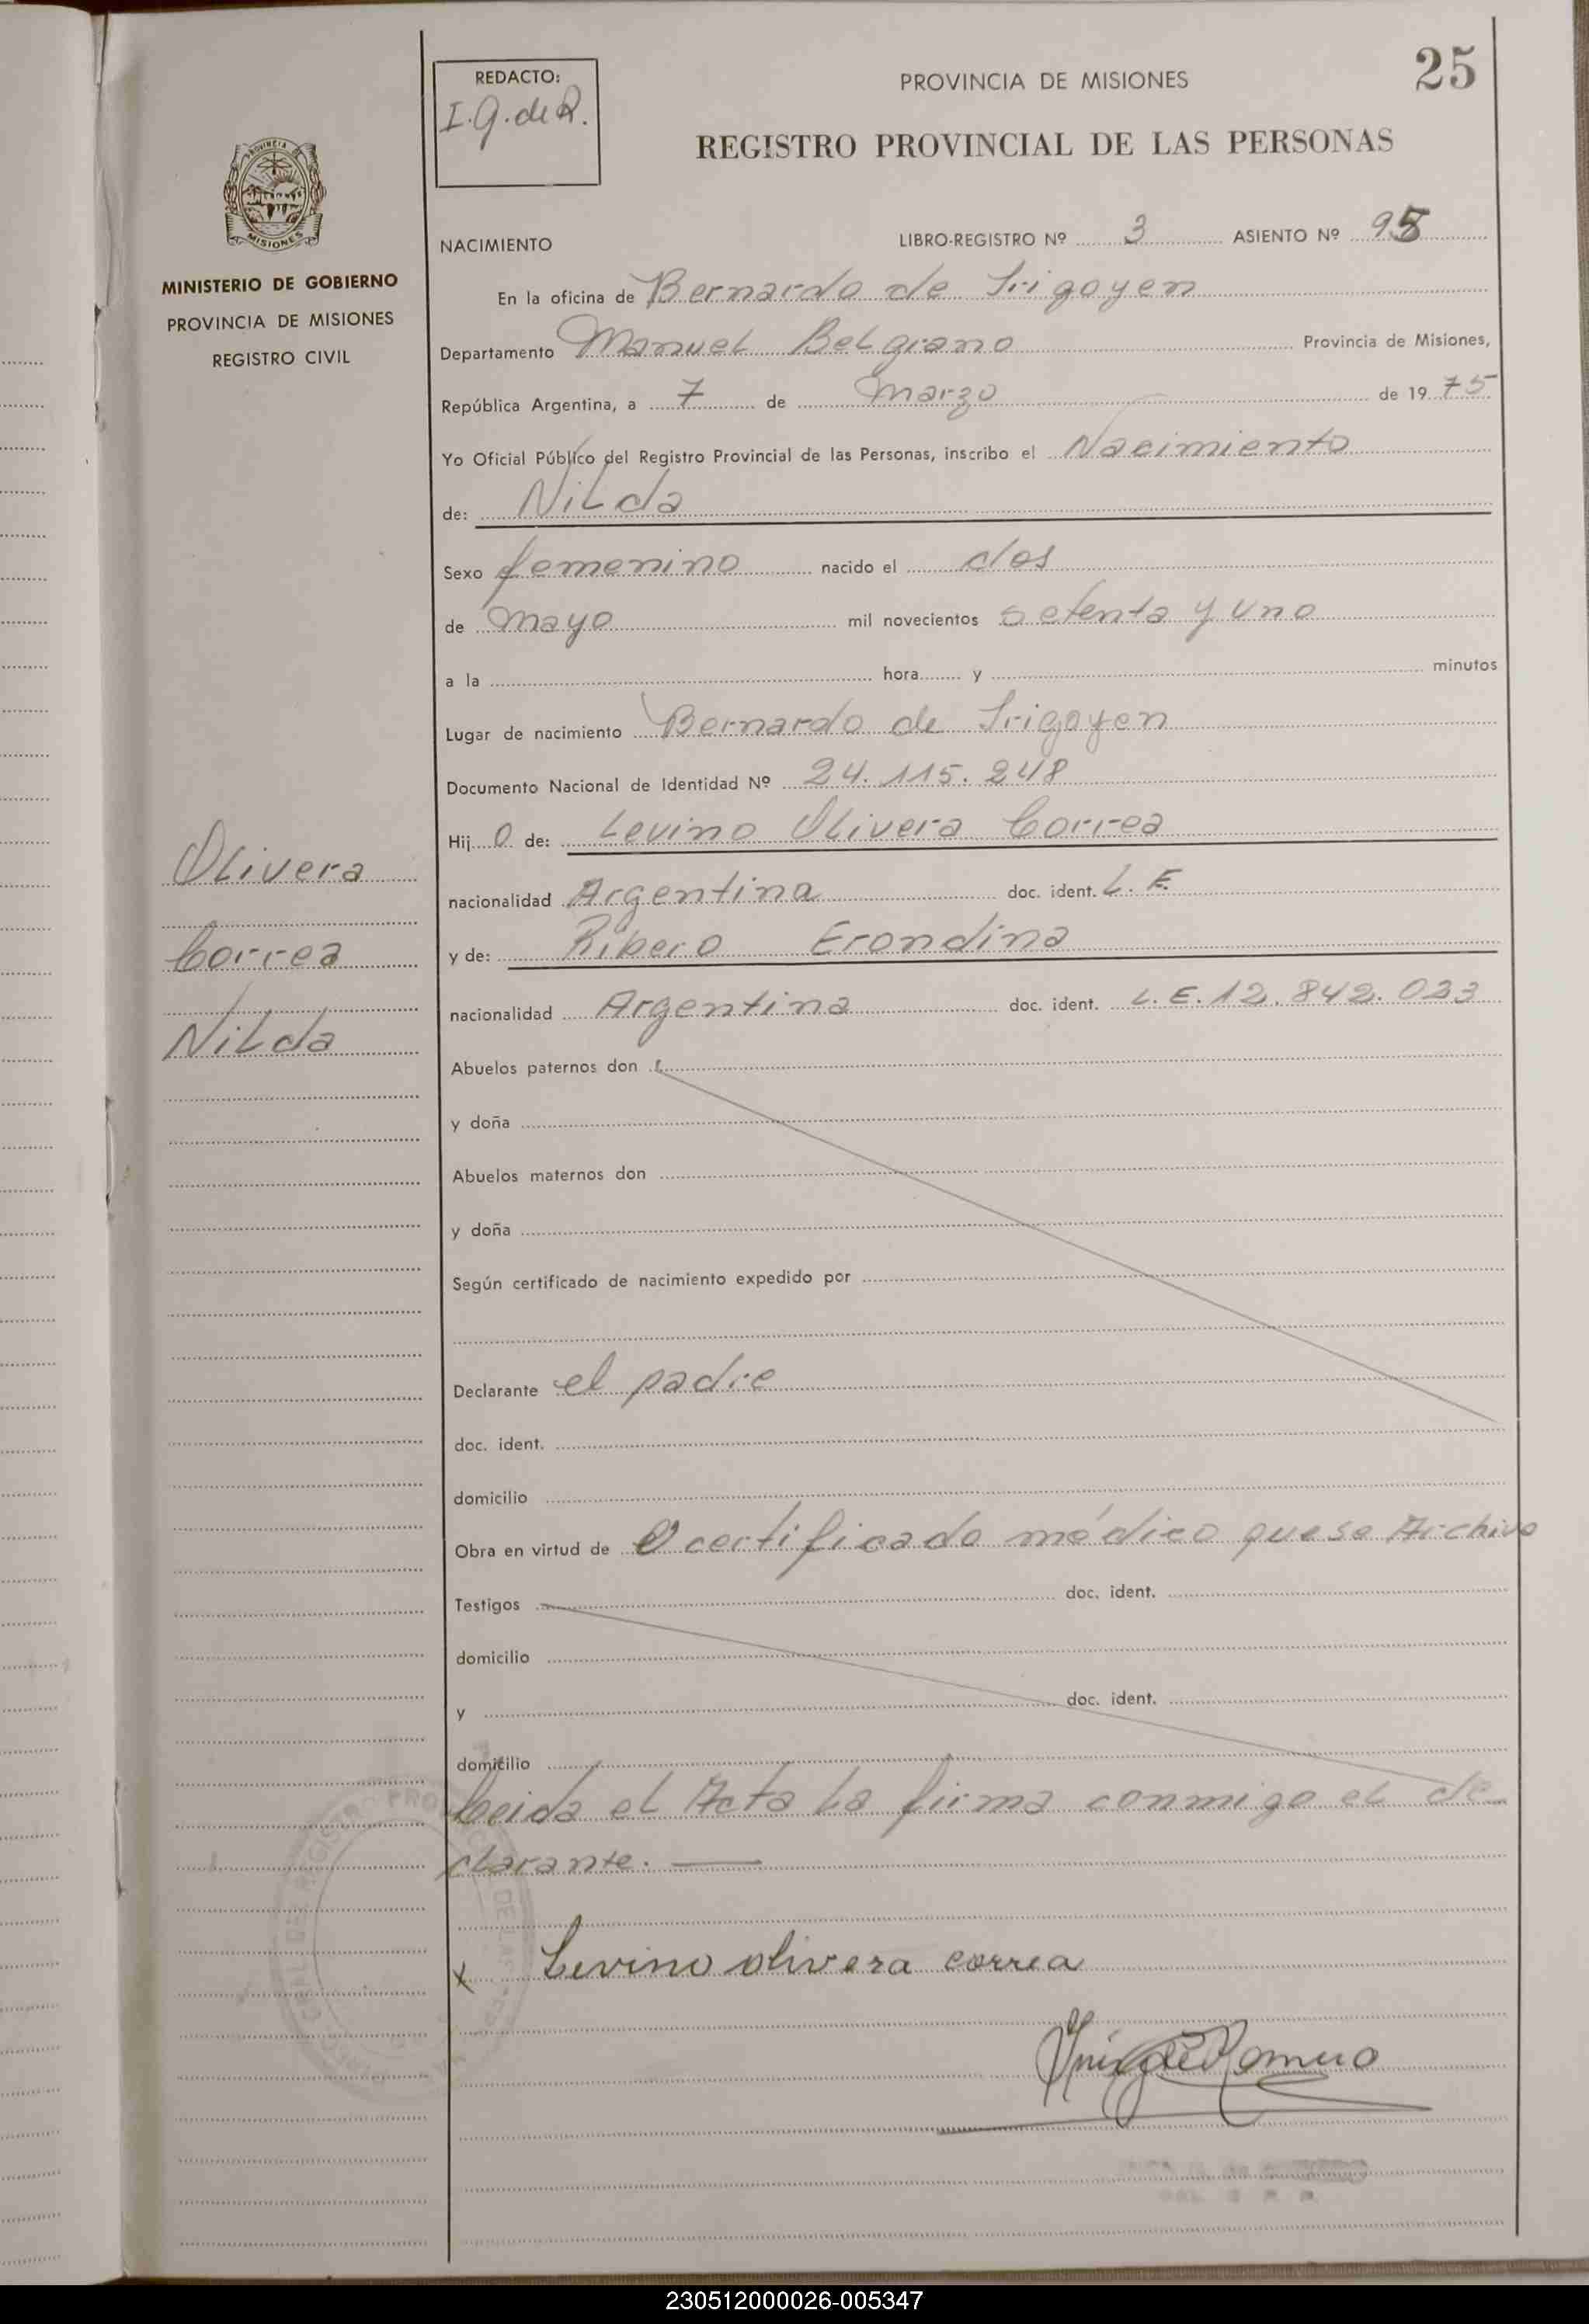 25
REDACTO:
I.G.de R.
PROVINCIA DE MISIONES
REGISTRO PROVINCIAL DE LAS PERSONAS
MISIONES
MINISTERIO DE GOBIERNO
PROVINCIA DE MISIONES
REGISTRO CIVIL
NACIMIENTO LIBRO-REGISTRO Nº 3 ASIENTO Nº
En la oficina de Bernardo de Irigoyen
Departamento Manuel Belgrano Provincia de Misiones,
República Argentina, a 7 de Marzo de 1975
Yo Oficial Público del Registro Provincial de las Personas, inscribo el Nacimiento
de: Nilda
Sexo femenino nacido el dos
de mayo mil novecientos setenta y uno
a la hora y minutos
Lugar de nacimiento Bernardo de Irigoyen
Documento Nacional de Identidad Nº 24.115.248
Hij o de: Levino Olivera Correa
nacionalidad Argentina doc. ident. L.E.
y de: Ribero Erondina
nacionalidad Argentina doc. ident. L.E. 12.842.033
Olivera
Correa
Nilda
Abuelos paternos don
y doña
Abuelos maternos don
y doña
Según certificado de nacimiento expedido por
Declarante el padre
doc. ident.
domicilio
Obra en virtud de certificado médico que se Archiva
Testigos doc. ident.
domicilio
y doc. ident.
domicilio
Leida el Acta La firma conmigo el de
clarante.
x Levino olivera correa
Inés G de Romero
230512000026-005347